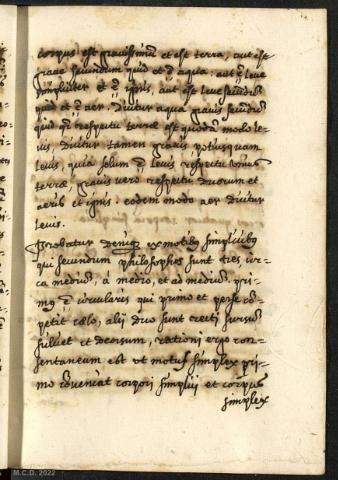 corpus est gravissimũ et est terra, aut est
grave secundum quid et ẽ aqua. aut ẽ leve
simpliciter et ẽ ignis, aut est leve secundũ
quid et ẽ aer. Dicitur aqua gravis secundũ
quid qr̃ respectu terræ est quodã modo le-
vis, dicitur tamen gravis potiusquam
levis, quia solum ẽ levis respectu unius
terræ, gravis vero respectu duorum et
aeris et ignis. eodem modo aer dicitur
levis.
Probatur deniq ex motibq simplicibq
qui secundum philosophos sunt tres cir-
ca mediũ, à medio, et ad mediũ, pri-
mq ẽ circularis qui primo et per se cõ-
petit cælo, alii duo sunt recti sursũ
scilicet et deorsum, rationi ergo con-
sentaneum est ut motus simplex pri-
mo cõveniat corpori simplici et corpus
simplex
M.C.D. 2022